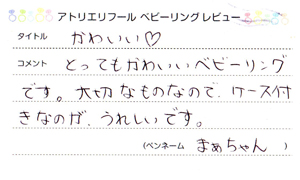 アトリエリフール ベビーリング レビュー
タイトル かわいい♡
コメント とってもかわいいベビーリング
です。大切なものなので、ケース付
きなのが、うれしいです。
(ペンネーム まぁちゃん )